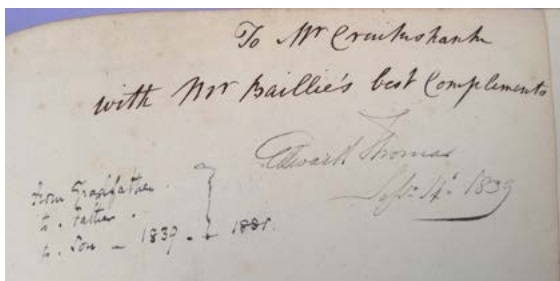 To Mr Cruikshank
with Mr Baillie's best Compliments
Edward Thomas
Sept. 14th 1839
from Grandfather.
to. Father.
to. Son - 1839. - 1881.